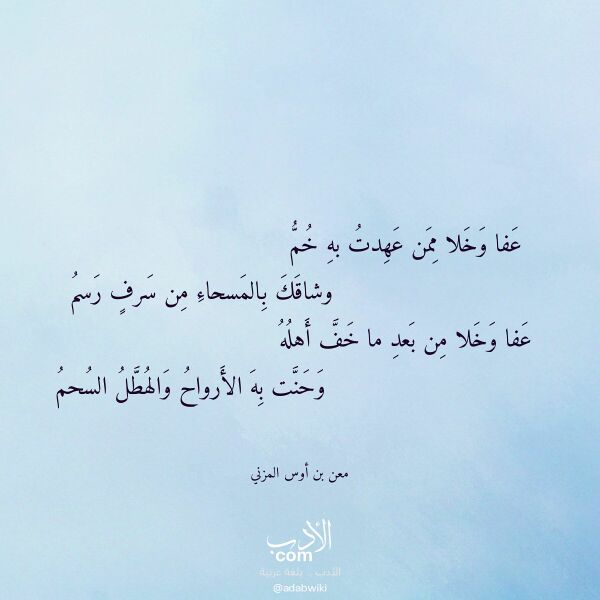 عَفا وَخَلا مِمَن عَهِدتُ بهِ خُمُّ
وشاقَكَ بِالمَسحاءِ مِن سَرفٍ رَسمُ
عَفا وَخَلا مِن بَعدِ ما خَفَّ أَهلُهُ
وَحَنَّت بِهَ الأَرواحُ وَالهُطَّلُ السُحمُ
معن بن أوس المزني
الأدب
com
الأدب .. بلغة عربية
@adabwiki